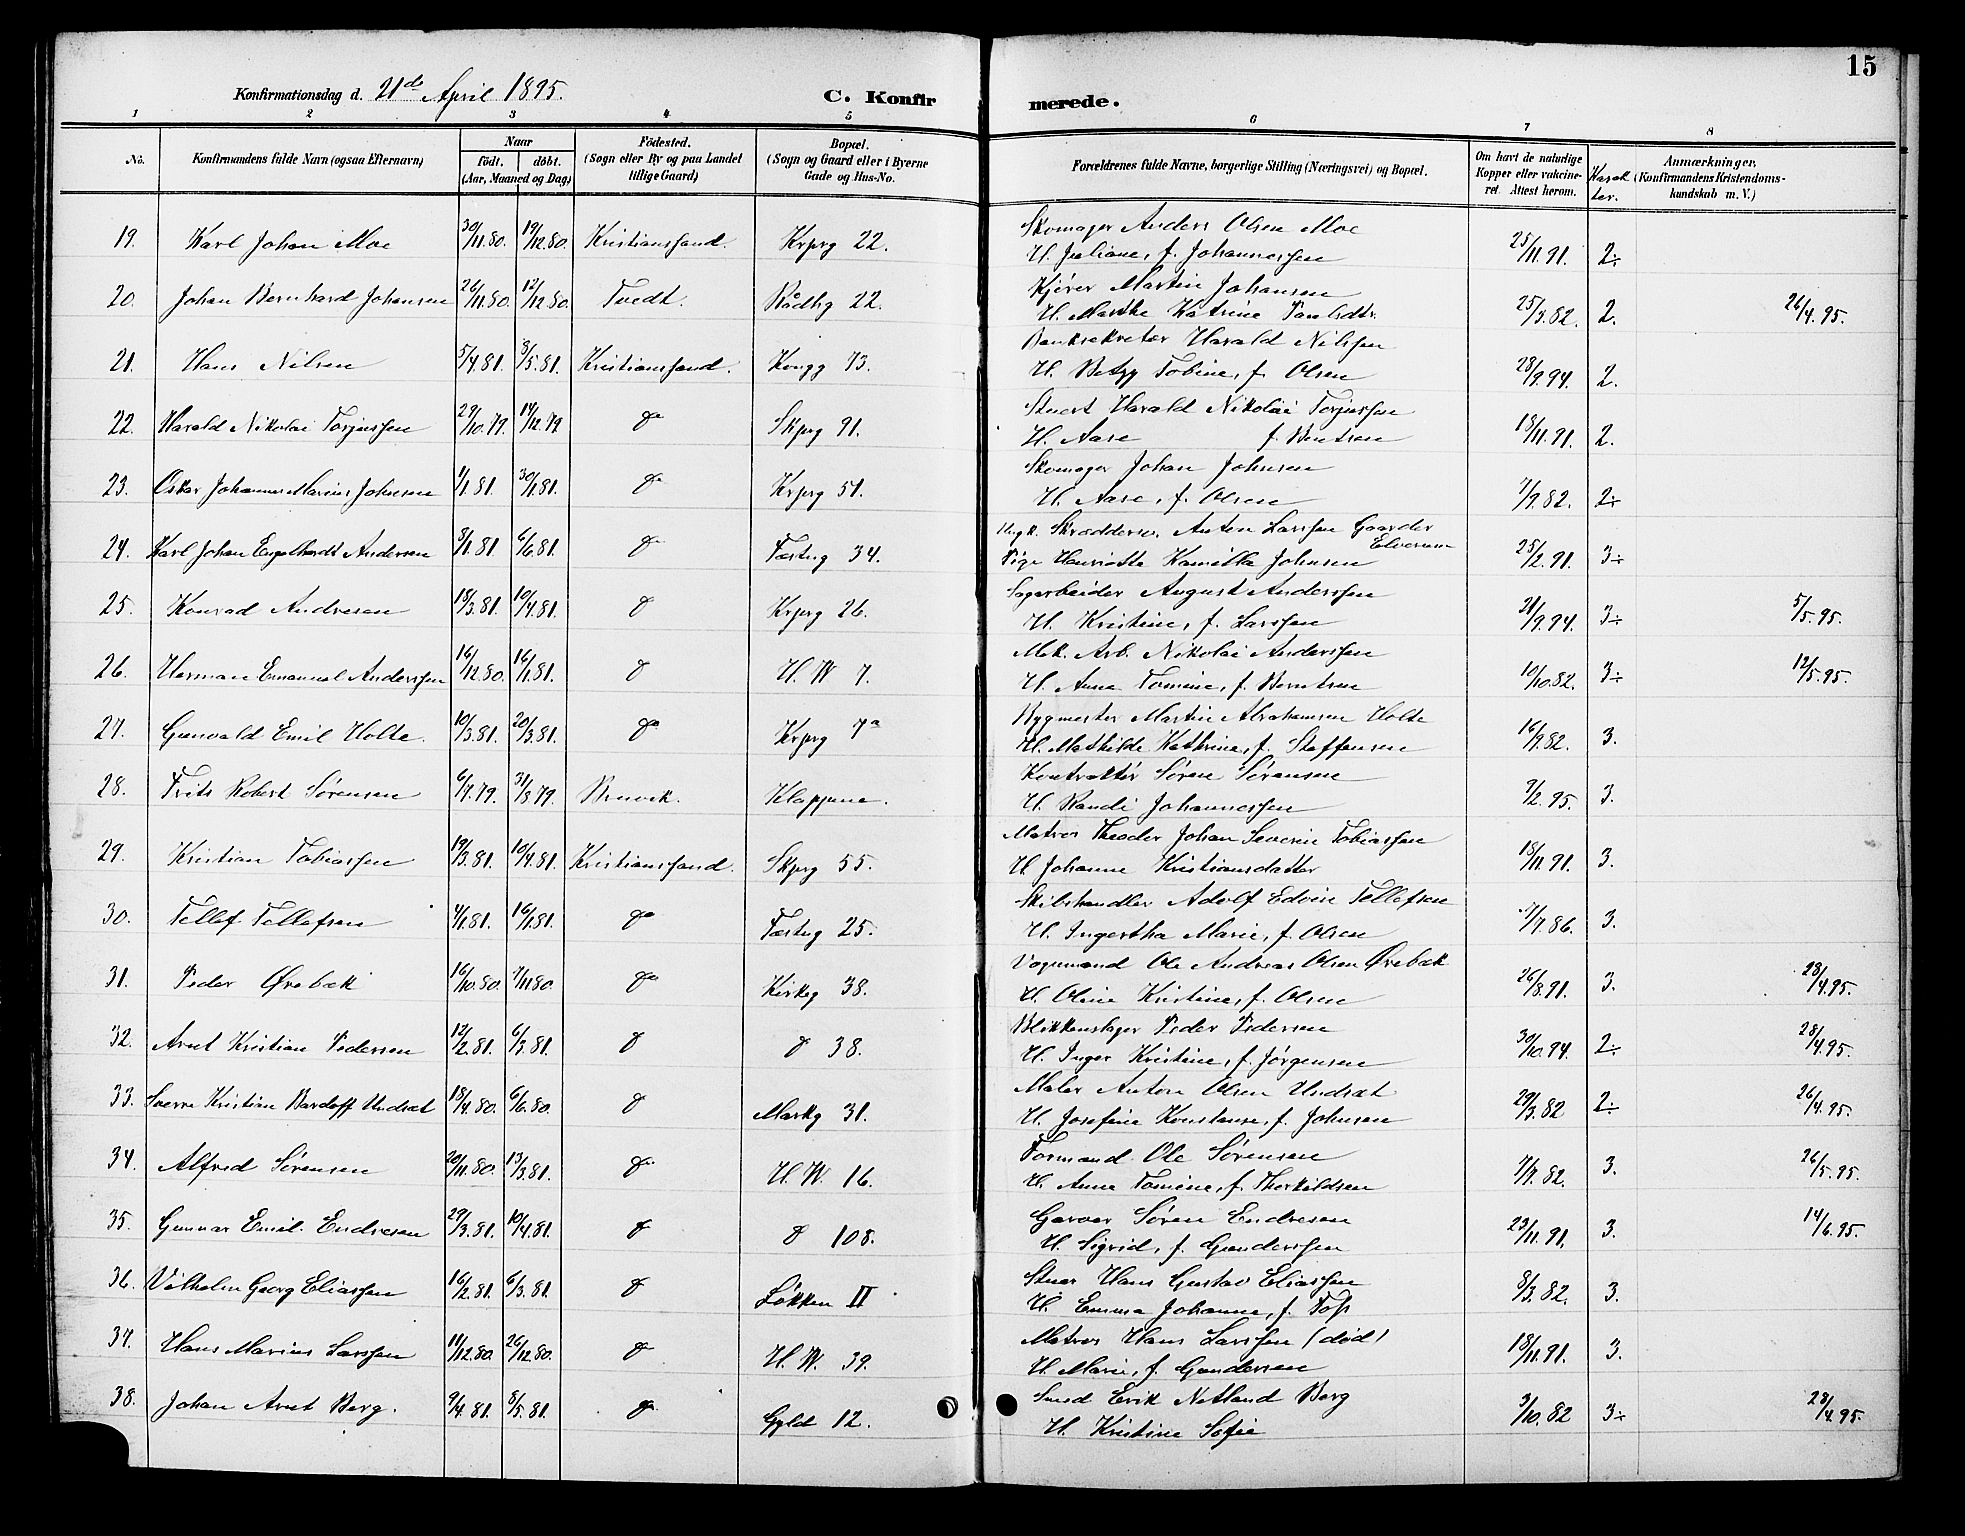 15
Konfirmationsdag d. 21de April 1895.
C. Konfirmerede.
1 2 3 4 5 6 7 8
No. Konfirmandens fulde Navn (ogsaa Efternavn) Naar født. døbt. (Aar, Maaned og Dag) Fødested. (Sogn eller By og paa Landet tillige Gaard) Bopæl. (Sogn og Gaard eller i Byerne Gade og Hus-No. Forældrenes fulde Navne, borgerlige Stilling (Næringsvei) og Bopæl. Om havt de naturlige Kopper eller vakcineret. Attest herom. Karakter. Anmærkninger, (Konfirmandens Kristendomskundskab m. V.)
19. Karl Johan Moe 30/11.80. 19/12.80. Kristianssand. Krprg 22. Skomager Anders Olsen Moe
H. Juliane, f. Johannessen 25/11.91. 2÷
20. Johan Bernhard Johansen 26/11.80. 12/12.80. Tvedt. Rådhg 22. Kjører Martin Johansen
H. Marthe Katrine 25/3.82. 2. 26/4.95.
21. Hans Nilsen 5/4.81. 3/5.81. Kristianssand. Kongg 73. Banksekretær Harald Nilssen
H. Betzy Tobine, f. Olsen 28/9.94. 2.
22. Harald Nikolai Torjussen 29/10.79. 14/12.79 do Skprg 91. Stuert Harald Nikolai Torjussen
H. Aase f. Bentsen 18/11.91. 2.
23. Oskar Johannes Marius Johnsen 1/1.81. 30/1.81. do Krprg 51. Skomager Johan Johnsen
H. Aase, f. Olsen 7/9.82. 2÷
24. Karl Johan Engelhardt Andersen 3/1.81. 6/6.81. do Fæstng 34. Ungk. Skræddersv. Anton Larssen Gaarder Elverum
Pige Henriette Kamilla Johnsen 25/2.91. 3÷
25. Konrad Andresen 18/3.81. 10/4.81. do Krprg 26. Sagarbeider August Anderssen
H. Kristine, f. Larssen 21/9.94. 3÷ 5/5.95.
26. Herman Emanuel Anderssen 16/12.80. 16/1.81. do H. W 7. Mek. Arb. Nikolai Anderssen
H. Anne Tomine, f. Berntsen 10/10.82. 3÷ 12/5.95.
27. Gunvald Emil Holte. 10/3.81. 20/3.81. do Krprg 7a Bygmester Martin Abrahamsen Holte
H. Mathilde Kathrine, f. Steffensen 16/9.82. 3.
28. Frits Robert Sørensen 6/7.79. 31/8.79. Bruvik. Klappene. Kontraktør Søren Sørensen
H. Randi Johannessen 9/2.95. 3.
29. Kristian Tobiassen 19/3.81. 10/4.81. Kristianssand. Skprg 55. Matros Theodor Johan Severin Tobiassen
H. Johanne Kristiansdatter 18/11.91. 3.
30. Tellef Tellefsen 4/1.81. 16/1.81. do Fæstng 25. Skilshandler Adolf Edvin Tellefsen
H. Ingertha Marie, f. Olsen 7/7.86. 3.
31. Peder Ørebæk 16/10.80. 7/11.80. do Kirkeg 38. Vognmand Ole Andreas Olsen Ørebæk
H. Oline Kristine, f. Olsen 26/8.91. 3. 28/4.95.
32. Arnt Kristian Pedersen 12/2.81. 6/3.81. do do 38. Blikkenslager Peder Pedersen
H. Inger Kristine, f. Jørgensen 30/10.94. 2÷ 28/4.95.
33. Sverre Kristian Bardoff Undsæt 18/4.80. 6/6.80. do Markg 31. Maler Anton Olsen Undsæt
H. Josefine Konstanse, f. Johnsen 29/3.82 2÷ 26/4.95.
34. Alfred Sørensen 20/11.80. 13/3.81. do H. W. 16. Formand Ole Sørensen
H. Anne Tomine, f. Therkildsen 7/7.82. 3. 26/5.95.
35. Gunnar Emil Endresen 29/3.81. 10/4.81. do do 108. Garver Søren Endresen
H. Sigrid, f. Gunderssen 23/11.91. 3. 14/6.95.
36. Vilhelm Georg Eliassen 16/2.81. 6/3.81. do Løkken II Stuer Hans Gustav Eliassen
H. Emma Johanne, f. Foss 8/3.82. 3.
37. Hans Marius Larssen 11/12.80. 26/12.80. do H. W. 39. Matros Hans Larssen (død)
H. Marie, f. Gundersen 18/11.91. 3.
38. Johan Arnt Berg. 9/4.81. 8/5.81. do Gyld 12. Smed Erik Netland Berg
H. Kristine Sofie 3/10.82 3÷ 28/4.95.